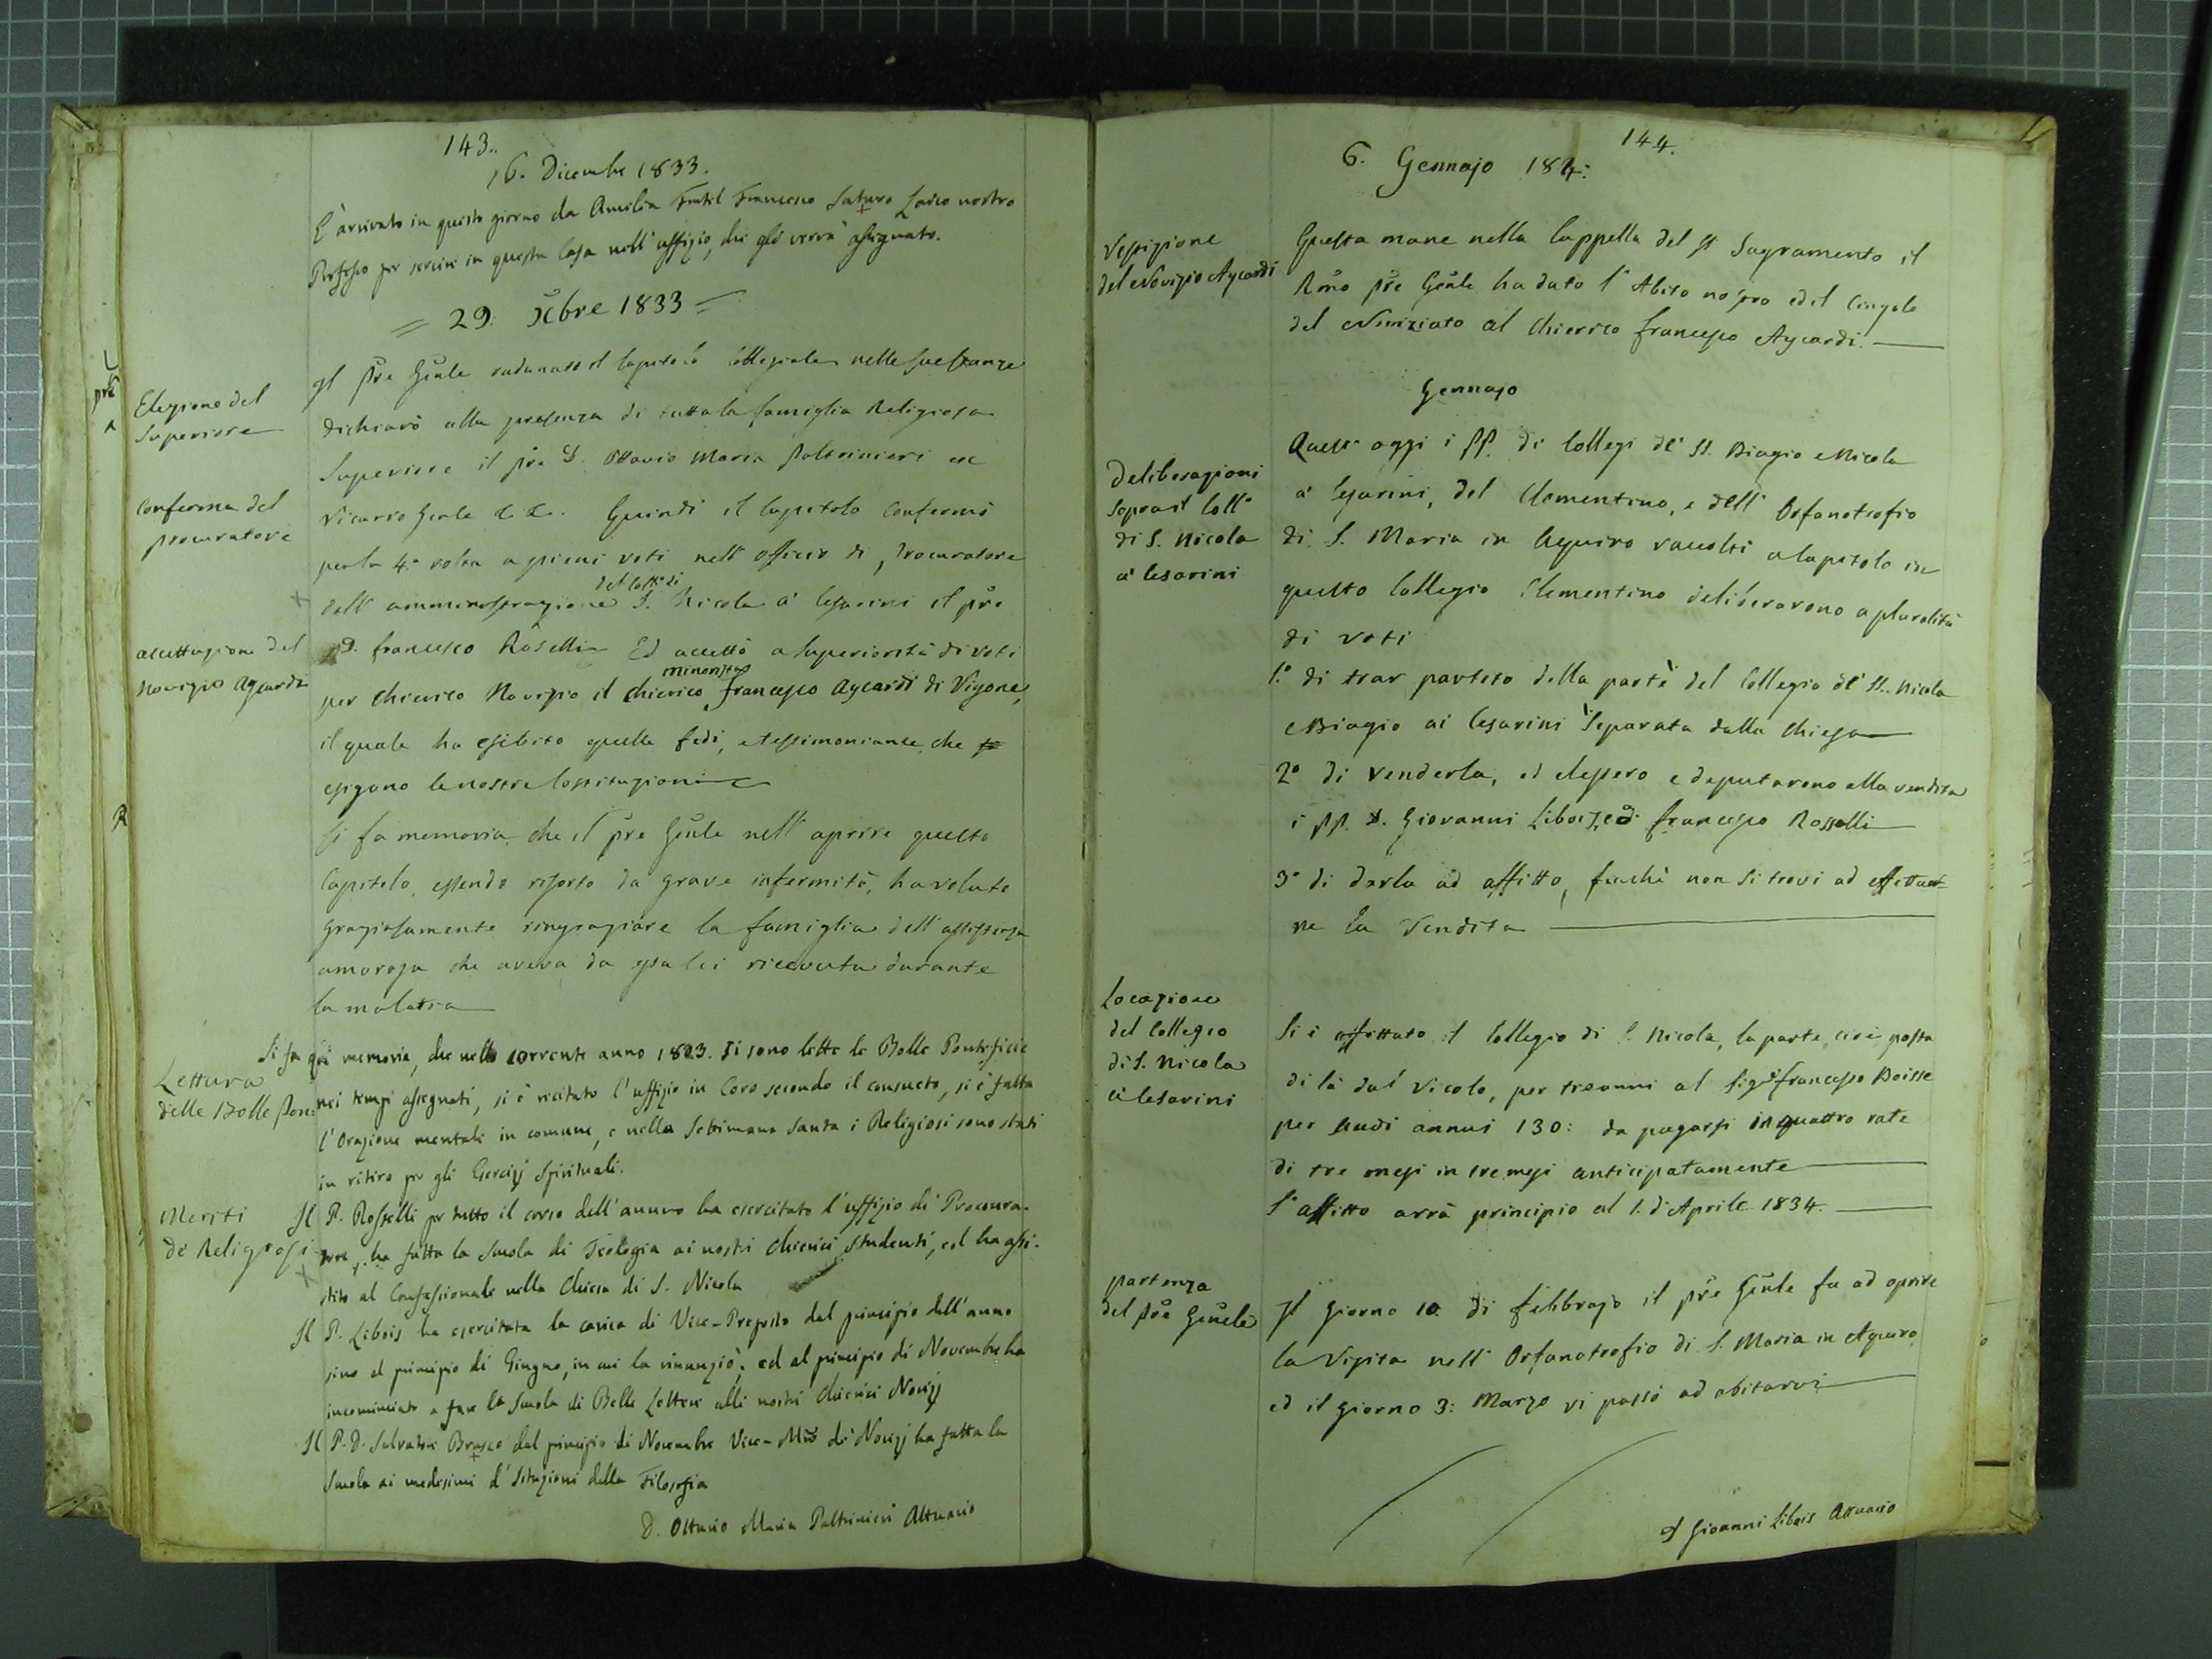 143.
16. Dicembre 1833.
È arrivato in questo giorno da Amelia Fratel Francesco Saturo Laico nostro
Professo per servire in questa Casa nell'uffizio, che gli verrà assegnato.
= 29. Xbre 1833 =
Elezione del
Superiore
Il pre Gñle radunato il Capitolo Collegiale nelle sue stanze
dichiarò alla presenza di tutta la famiglia Religiosa
Superiore il pre D. Ottavio Maria Paltrinieri ex
Conferma del
procuratore
Vicario Gerle &. &. Quindi il Capitolo confermò
per la 4.a volta a pieni voti nell'officio di Procuratore
del Coll.o di
dell'amministrazione S. Nicola a' Cesarini il pre
accettazione del
Novizio Aycardi
D. Francesco Rosselli Ed accettò a superiorità di voti
minorista
per Chierico Novizio il chierico Francesco Aycardi di Vigone,
il quale ha esibito quelle fedi, e testimonianze, che
esigono le nostre Costituzioni
Si fa memoria, che il pre Gñle nell'aprire questo
Capitolo, essendo risorto da grave infermità, ha voluto
graziosamente ringraziare la famiglia dell'assistenza
amorosa che aveva da essa lei ricevuta durante
la malattia
Si fa qui memoria, che nello corrente anno 1823. si sono lette le Bolle Pontificie
Lettura
delle Bolle Pon:
nei tempi assegnati, si è recitato l'uffizio in Coro secondo il consueto, si è fatta
l'Orazione mentale in comune, e nella Settimana Santa i Religiosi sono stati
in ritiro per gli Esercizj Spirituali.
Meriti
de' Religiosi
Il P. Rosselli per tutto il corso dell'anno ha esercitato l'uffizio di Procura-
tore, ha fatta la Scuola di Teologia ai nostri Chierici Studenti, ed ha assi-
stito al Confessionale nella Chiesa di S. Nicola
Il P. Libois ha esercitata la carica di Vice-Preposto dal principio dell'anno
sino al principio di Giugno, in cui la rinunziò; ed al principio di Novembre ha
incominciato a fare la Scuola di Belle Lettere alli nostri Chierici Novizj
Il P. D. Salvatore Brasco dal principio di Novembre Vice-Mro de' Novizj ha fatta la
Scuola ai medesimi d'Istuzioni della Filosofia
D. Ottavio Maria Paltrinieri Attuario
144.
6. Gennajo 184:
Vestizione
del Novizio Aycardi
Questa mane nella Cappella del SS Sagramento il
Rmo pre Gñle ha dato l'Abito nostro ed il Cingolo
del Noviziato al Chierico Francesco Aycardi.
Gennajo
Deliberazioni
sopra il Coll.o
di S. Nicola
a' Cesarini
Quest'oggi i PP. di Collegi de' SS. Biagio e Nicola
a' Cesarini, del Clementino, e dell'Orfanotrofio
di S. Maria in Aquiro raccolti a Capitolo in
questo Collegio Clementino deliberarono a pluralità
di voti
1.o di trar partito della parte del Collegio de' SS. Nicola
e Biagio ai Cesarini separata dalla Chiesa
2.o di venderla, ed elessero e deputarono alla vendita
i PP. D. Giovanni Libois, e D. Francesco Rosselli
3.o di darla ad affitto, finchè non si trovi ad effettuar-
ne la Vendita
Locazione
del Collegio
di S. Nicola
a' Cesarini
Si è affittato il Collegio di S. Nicola, la parte, cioè posta
di là dal Vicolo, per tre anni al Sigr Francesco Boisse
per scudi annui 130: da pagarsi in quattro rate
di tre mesi in tre mesi anticipatamente
L'affitto avrà principio al 1. d'Aprile 1834.
partenza
del Pre Gñle
Il Giorno 10 di Febbrajo il pre Gñle fu ad aprire
la Visita nell'Orfanotrofio di S. Maria in Aquiro
ed il giorno 3: Marzo vi passò ad abitarvi
D Giovanni Libois Attuario